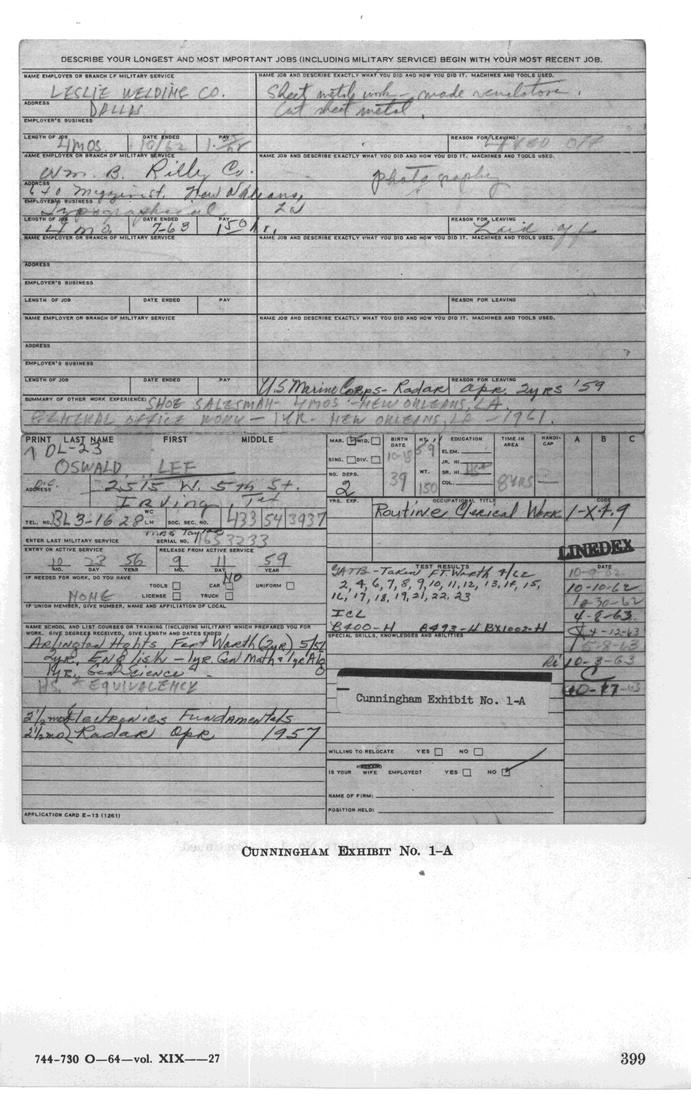 DESCRIBE YOUR LONGEST AND MOST IMPORTANT JOBS (INCLUDING MILITARY SERVICE) BEGIN WITH YOUR MOST RECENT JOB.
NAME EMPLOYER OR BRANCH OF MILITARY SERVICE
LESLIE WELDING CO.
NAME JOB AND DESCRIBE EXACTLY WHAT YOU DID AND HOW YOU DID IT. MACHINES AND TOOLS USED.
Sheet metal work - made
Cut sheet metal
ADDRESS
DALLAS
EMPLOYER'S BUSINESS
LENGTH OF JOB 4 MOS. DATE ENDED 10/62 PAY REASON FOR LEAVING
NAME EMPLOYER OR BRANCH OF MILITARY SERVICE
Wm. B. Rilly Co.
NAME JOB AND DESCRIBE EXACTLY WHAT YOU DID AND HOW YOU DID IT. MACHINES AND TOOLS USED.
photography
ADDRESS
640 New Orleans,
EMPLOYER'S BUSINESS La
LENGTH OF JOB 4 mo. DATE ENDED 7-63 PAY 150 hr. REASON FOR LEAVING Laid off
NAME EMPLOYER OR BRANCH OF MILITARY SERVICE
NAME JOB AND DESCRIBE EXACTLY WHAT YOU DID AND HOW YOU DID IT. MACHINES AND TOOLS USED.
ADDRESS
EMPLOYER'S BUSINESS
LENGTH OF JOB DATE ENDED PAY REASON FOR LEAVING
NAME EMPLOYER OR BRANCH OF MILITARY SERVICE
NAME JOB AND DESCRIBE EXACTLY WHAT YOU DID AND HOW YOU DID IT. MACHINES AND TOOLS USED.
ADDRESS
EMPLOYER'S BUSINESS
LENGTH OF JOB DATE ENDED PAY REASON FOR LEAVING
U.S. Marine Corps - Radar Opr. 2yrs '59
SUMMARY OF OTHER WORK EXPERIENCE: SHOE SALESMAN - 4 MOS - NEW ORLEANS, LA.
GENERAL OFFICE WORK - 1 YR - NEW ORLEANS, LA - 1961
PRINT LAST NAME FIRST MIDDLE
DL-23
OSWALD LEE
ADDRESS 2515 W. 5th St.
Irving Tex
TEL. NO. BL 3-1628 SOC. SEC. NO. 433 54 3937
ENTER LAST MILITARY SERVICE SERIAL NO. 1653233
ENTRY ON ACTIVE SERVICE RELEASE FROM ACTIVE SERVICE
10 23 56 9 11 59
MO. DAY YEAR MO. DAY YEAR
IF NEEDED FOR WORK, DO YOU HAVE
NONE
TOOLS CAR NO UNIFORM
LICENSE TRUCK
IF UNION MEMBER, GIVE NUMBER, NAME AND AFFILIATION OF LOCAL
NAME SCHOOL AND LIST COURSES OR TRAINING (INCLUDING MILITARY) WHICH PREPARED YOU FOR
WORK. GIVE DEGREES RECEIVED, GIVE LENGTH AND DATES ENDED
Arlington Hghts Fort Worth (2yr)
2yr. English - 1yr. Gen Math & 1yr Alg
1yr. Gen Science
H.S. EQUIVALENCY
2 1/2 mo Electronics Fundamentals
2 1/2 mo Radar Opr 1957
APPLICATION CARD E-13 (1261)
MAR. WID.
SING. DIV.
NO. DEPS.
2
BIRTH DATE
10-18
39
HT.
5 9
WT.
150
EDUCATION
ELEM.
JR. HI
SR. HI
COL.
TIME IN AREA
8 YRS
HANDI-CAP
A B C
YRS. EXP. OCCUPATIONAL TITLE CODE
Routine Clerical Work 1-X4.9
LINEDEX
TEST RESULTS
GATB - Taken Ft. Worth
2, 4, 6, 7, 8, 9, 10, 11, 12, 13, 14, 15,
16, 17, 18, 19, 21, 22, 23
ICL
B400-H B493-H BX1002-H
SPECIAL SKILLS, KNOWLEDGE AND ABILITIES
DATE
10-10-62
10-30-62
4-8-63
4-12-63
5-8-63
10-3-63
10-17-63
Cunningham Exhibit No. 1-A
WILLING TO RELOCATE YES NO
IS YOUR WIFE EMPLOYED? YES NO
NAME OF FIRM:
POSITION HELD:
CUNNINGHAM EXHIBIT NO. 1-A
744-730 O—64—vol. XIX——27
399